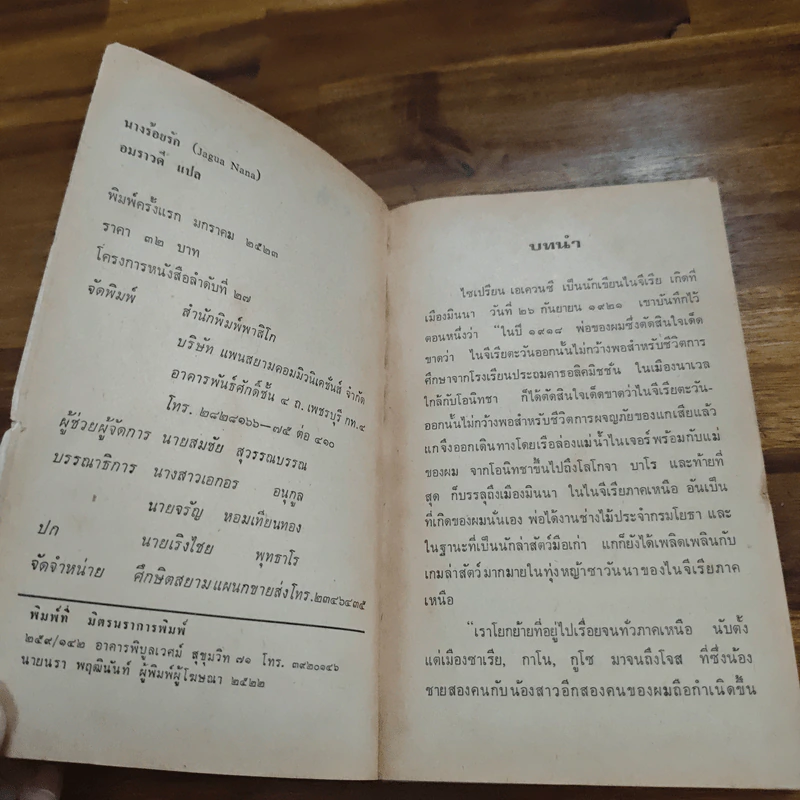 นางร้อยรัก (Jagua Nana)
อมราวดี แปล
พิมพ์ครั้งแรก มกราคม ๒๕๒๓
ราคา ๓๒ บาท
โครงการหนังสือลำดับที่ ๒๗
จัดพิมพ์ สำนักพิมพ์พาสิโก
บริษัท แพนสยามคอมมิวนิเคชั่นส์ จำกัด
อาคารพันธ์ศักดิ์ชั้น ๔ ถ. เพชรบุรี กท.๔
โทร. ๒๘๒๘๑๖๖—๗๕ ต่อ ๔๑๐
ผู้ช่วยผู้จัดการ นายสมชัย สุวรรณบรรณ
บรรณาธิการ นางสาวเอกอร อนุกูล
นายจรัญ หอมเทียนทอง
ปก นายเริงไชย พุทธาโร
จัดจำหน่าย ศึกษิตสยามแผนกขายส่งโทร.๒๓๔๖๔๓๕
พิมพ์ที่ มิตรนราการพิมพ์
๒๕๙/๑๔๒ อาคารพิบูลเวศม์ สุขุมวิท ๗๑ โทร. ๓๙๒๐๑๔๖
นายนรา พฤฒินันท์ ผู้พิมพ์ผู้โฆษณา ๒๕๒๒
บทนำ
ไซเปรียน เอเควนซี เป็นนักเขียนไนจีเรีย เกิดที่
เมืองมินนา วันที่ ๒๖ กันยายน ๑๙๒๑ เขาบันทึกไว้
ตอนหนึ่งว่า “ในปี ๑๙๑๘ พ่อของผมซึ่งตัดสินใจเด็ด
ขาดว่า ไนจีเรียตะวันออกนั้นไม่กว้างพอสำหรับชีวิตการ
ศึกษาจากโรงเรียนประถมคาธอลิคมิชชั่น ในเมืองนาเวล
ใกล้กับโอนิทชา ก็ได้ตัดสินใจเด็ดขาดว่าไนจีเรียตะวัน-
ออกนั้นไม่กว้างพอสำหรับชีวิตการผจญภัยของแกเสียแล้ว
แกจึงออกเดินทางโดยเรือล่องแม่น้ำไนเจอร์พร้อมกับแม่
ของผม จากโอนิทชาขึ้นไปถึงโลโกจา บาโร และท้ายที่
สุด ก็บรรลุถึงเมืองมินนา ในไนจีเรียภาคเหนือ อันเป็น
ที่เกิดของผมนั่นเอง พ่อได้งานช่างไม้ประจำกรมโยธา และ
ในฐานะที่เป็นนักล่าสัตว์มือเก่า แกก็ยังได้เพลิดเพลินกับ
เกมล่าสัตว์มากมายในทุ่งหญ้าซาวันนาของไนจีเรียภาค
เหนือ
“เราโยกย้ายที่อยู่ไปเรื่อยจนทั่วภาคเหนือ นับตั้ง
แต่เมืองซาเรีย, กาโน, กูโซ มาจนถึงโจส ที่ซึ่งน้อง
ชายสองคนกับน้องสาวอีกสองคนของผมถือกำเนิดขึ้น